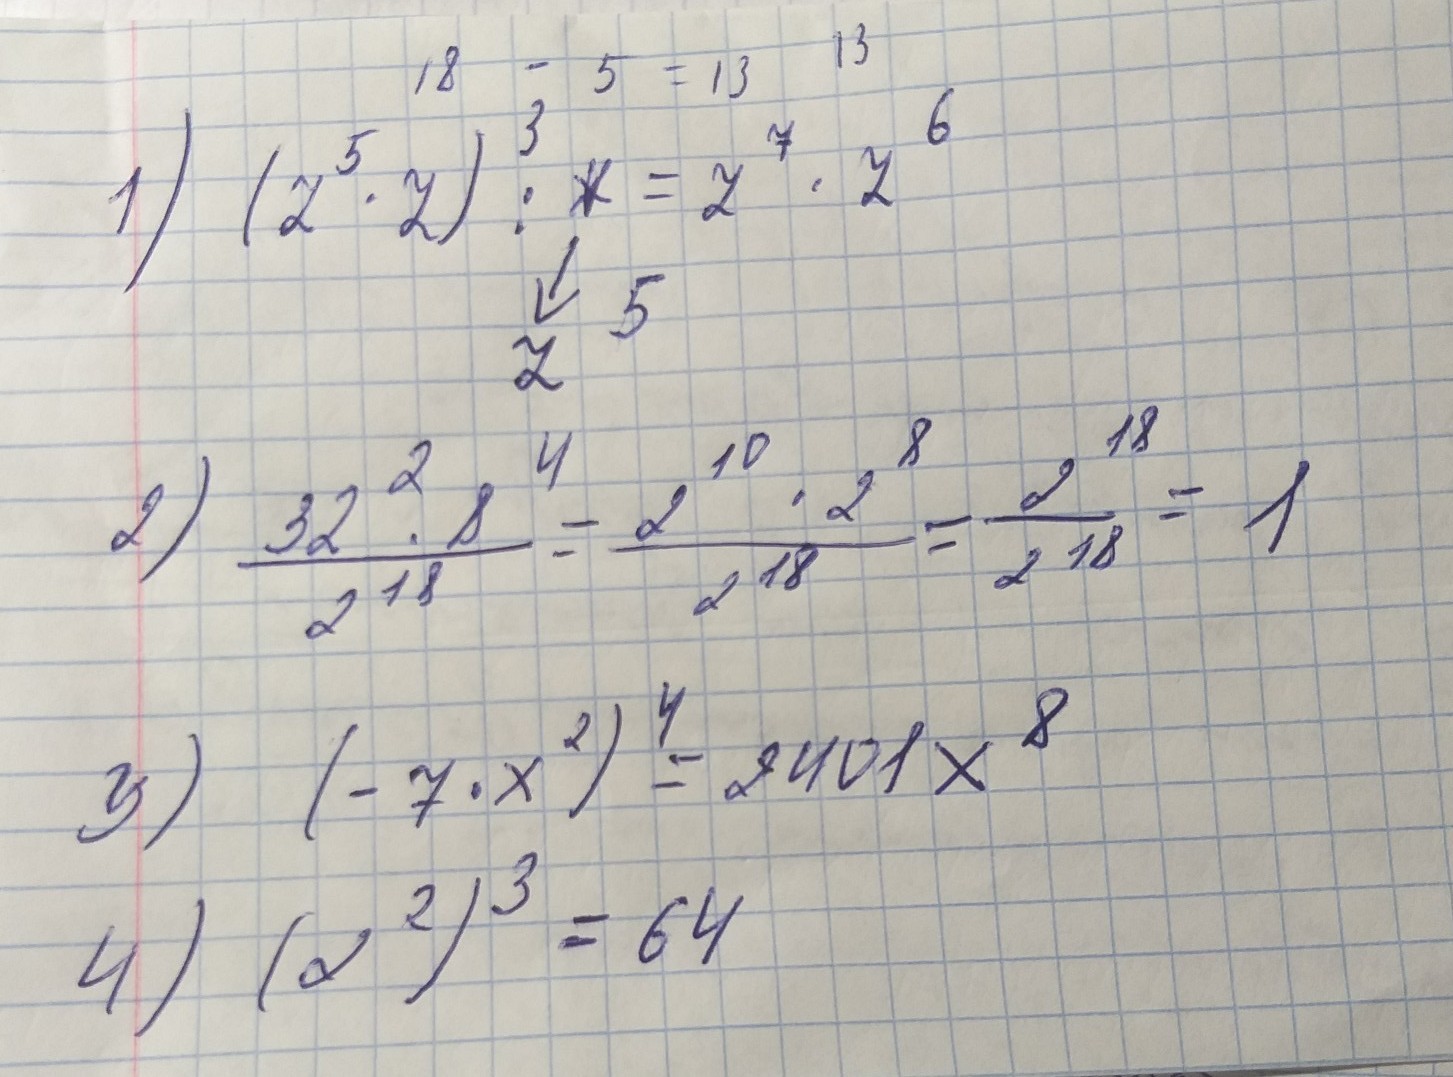 18 - 5 = 13 13
1) (z⁵ · z)³ : * = z⁷ · z⁶
↓
z⁵
2) 32² · 8⁴ / 2¹⁸ = 2¹⁰ · 2⁸ / 2¹⁸ = 2¹⁸ / 2¹⁸ = 1
3) (-7 · x²)⁴ = 2401x⁸
4) (2²)³ = 64